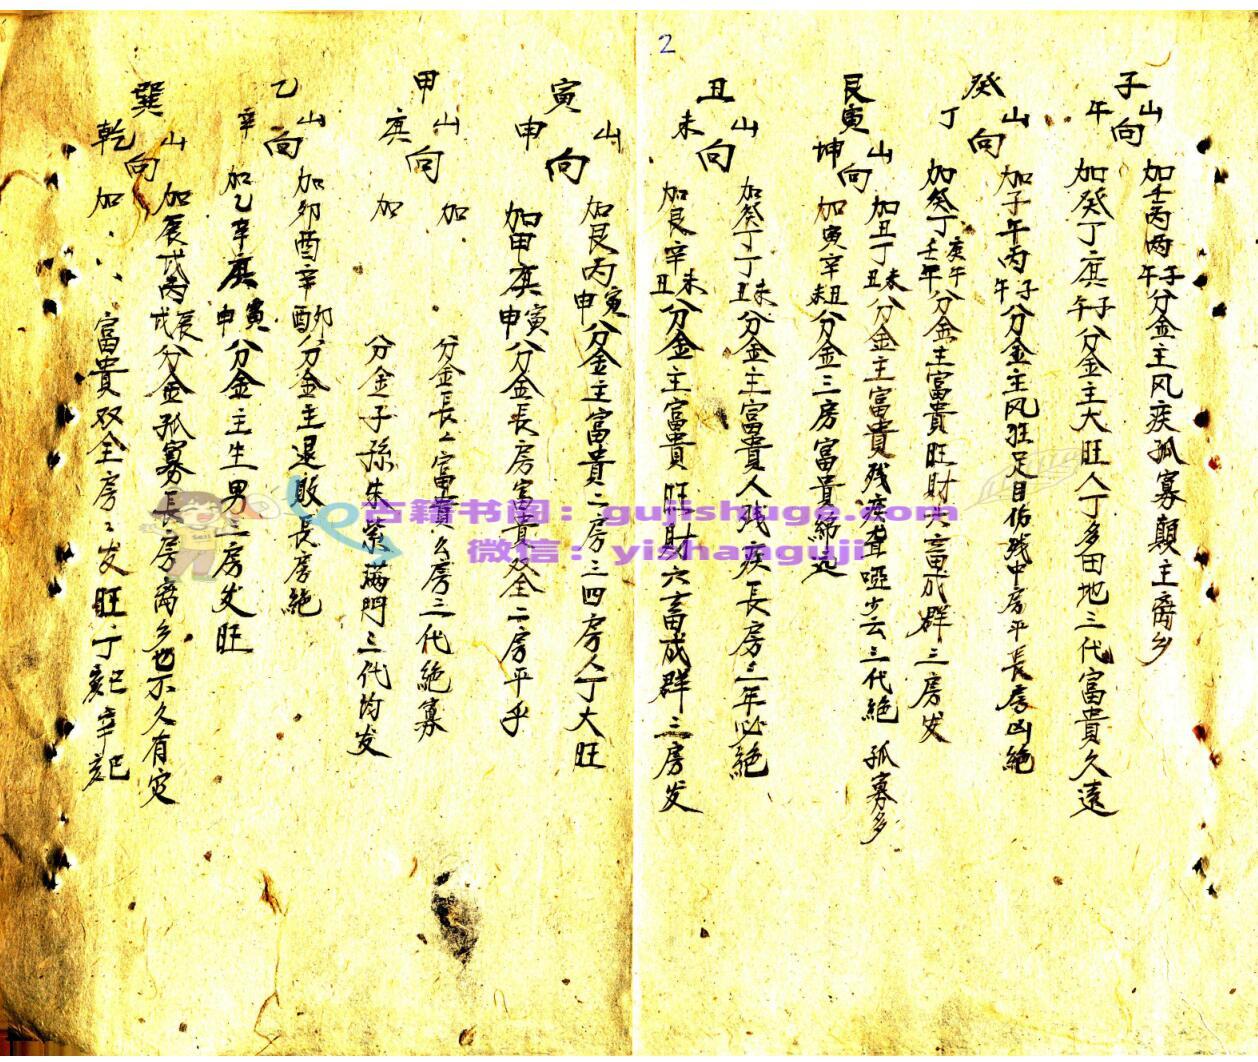 2
子山午向
加壬丙丙午子分金主风疾孤寡顛主离乡
加癸丁庚午子分金主大旺人丁多田地三代富貴久遠
癸山丁向
加子午丙午子分金主风狂足目伤残中房平長房凶絶
加癸丁壬午庚午分金主富貴旺財六畜成群三房发
艮寅山坤向
加丑丁丑未分金主富貴残疾聋哑少云三代絶 孤寡多
加寅辛未丑分金三房富貴綿远
丑山未向
加癸丁丁丑未分金主富貴人残疾長房三年必絶
加艮辛丑未分金主富貴旺財六畜成群三房发
寅山申向
加艮丙申寅分金主富貴二房三四房人丁大旺
加甲庚申寅分金長房富貴双全二房平乎
甲山庚向
加 分金長之富貴么房三代絶寡
加 分金子孫朱紫滿門三代均发
乙山辛向
加卯酉辛酉卯分金主退敗長房絶
加乙辛庚申寅分金主生男三房发旺
巽山乾向
加辰戌丙戌辰分金孤寡長房离乡也不久有定
加 富貴双全房々发旺
古籍书阁：gujishuge.com
微信：yishanguji